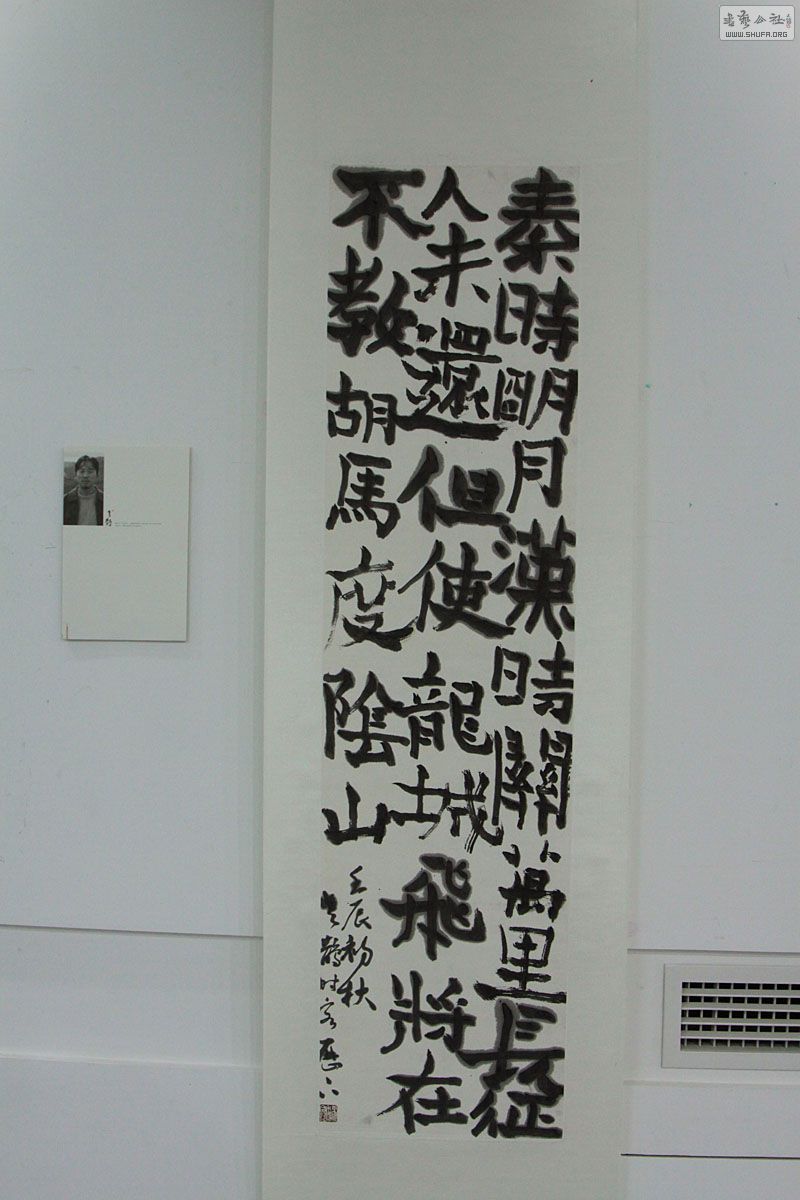 秦時明月漢時關萬里長征
人未還但使龍城飛將在
不教胡馬度陰山
壬辰初秋
書藝公社
WWW.SHUFA.ORG